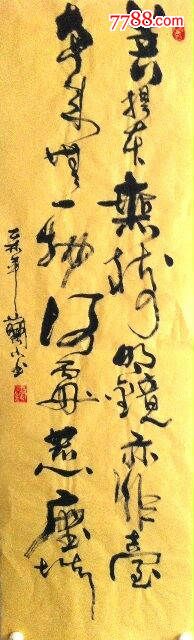 7788.com
菩提本無樹明鏡亦非臺
本来無一物何處惹塵埃
乙未年